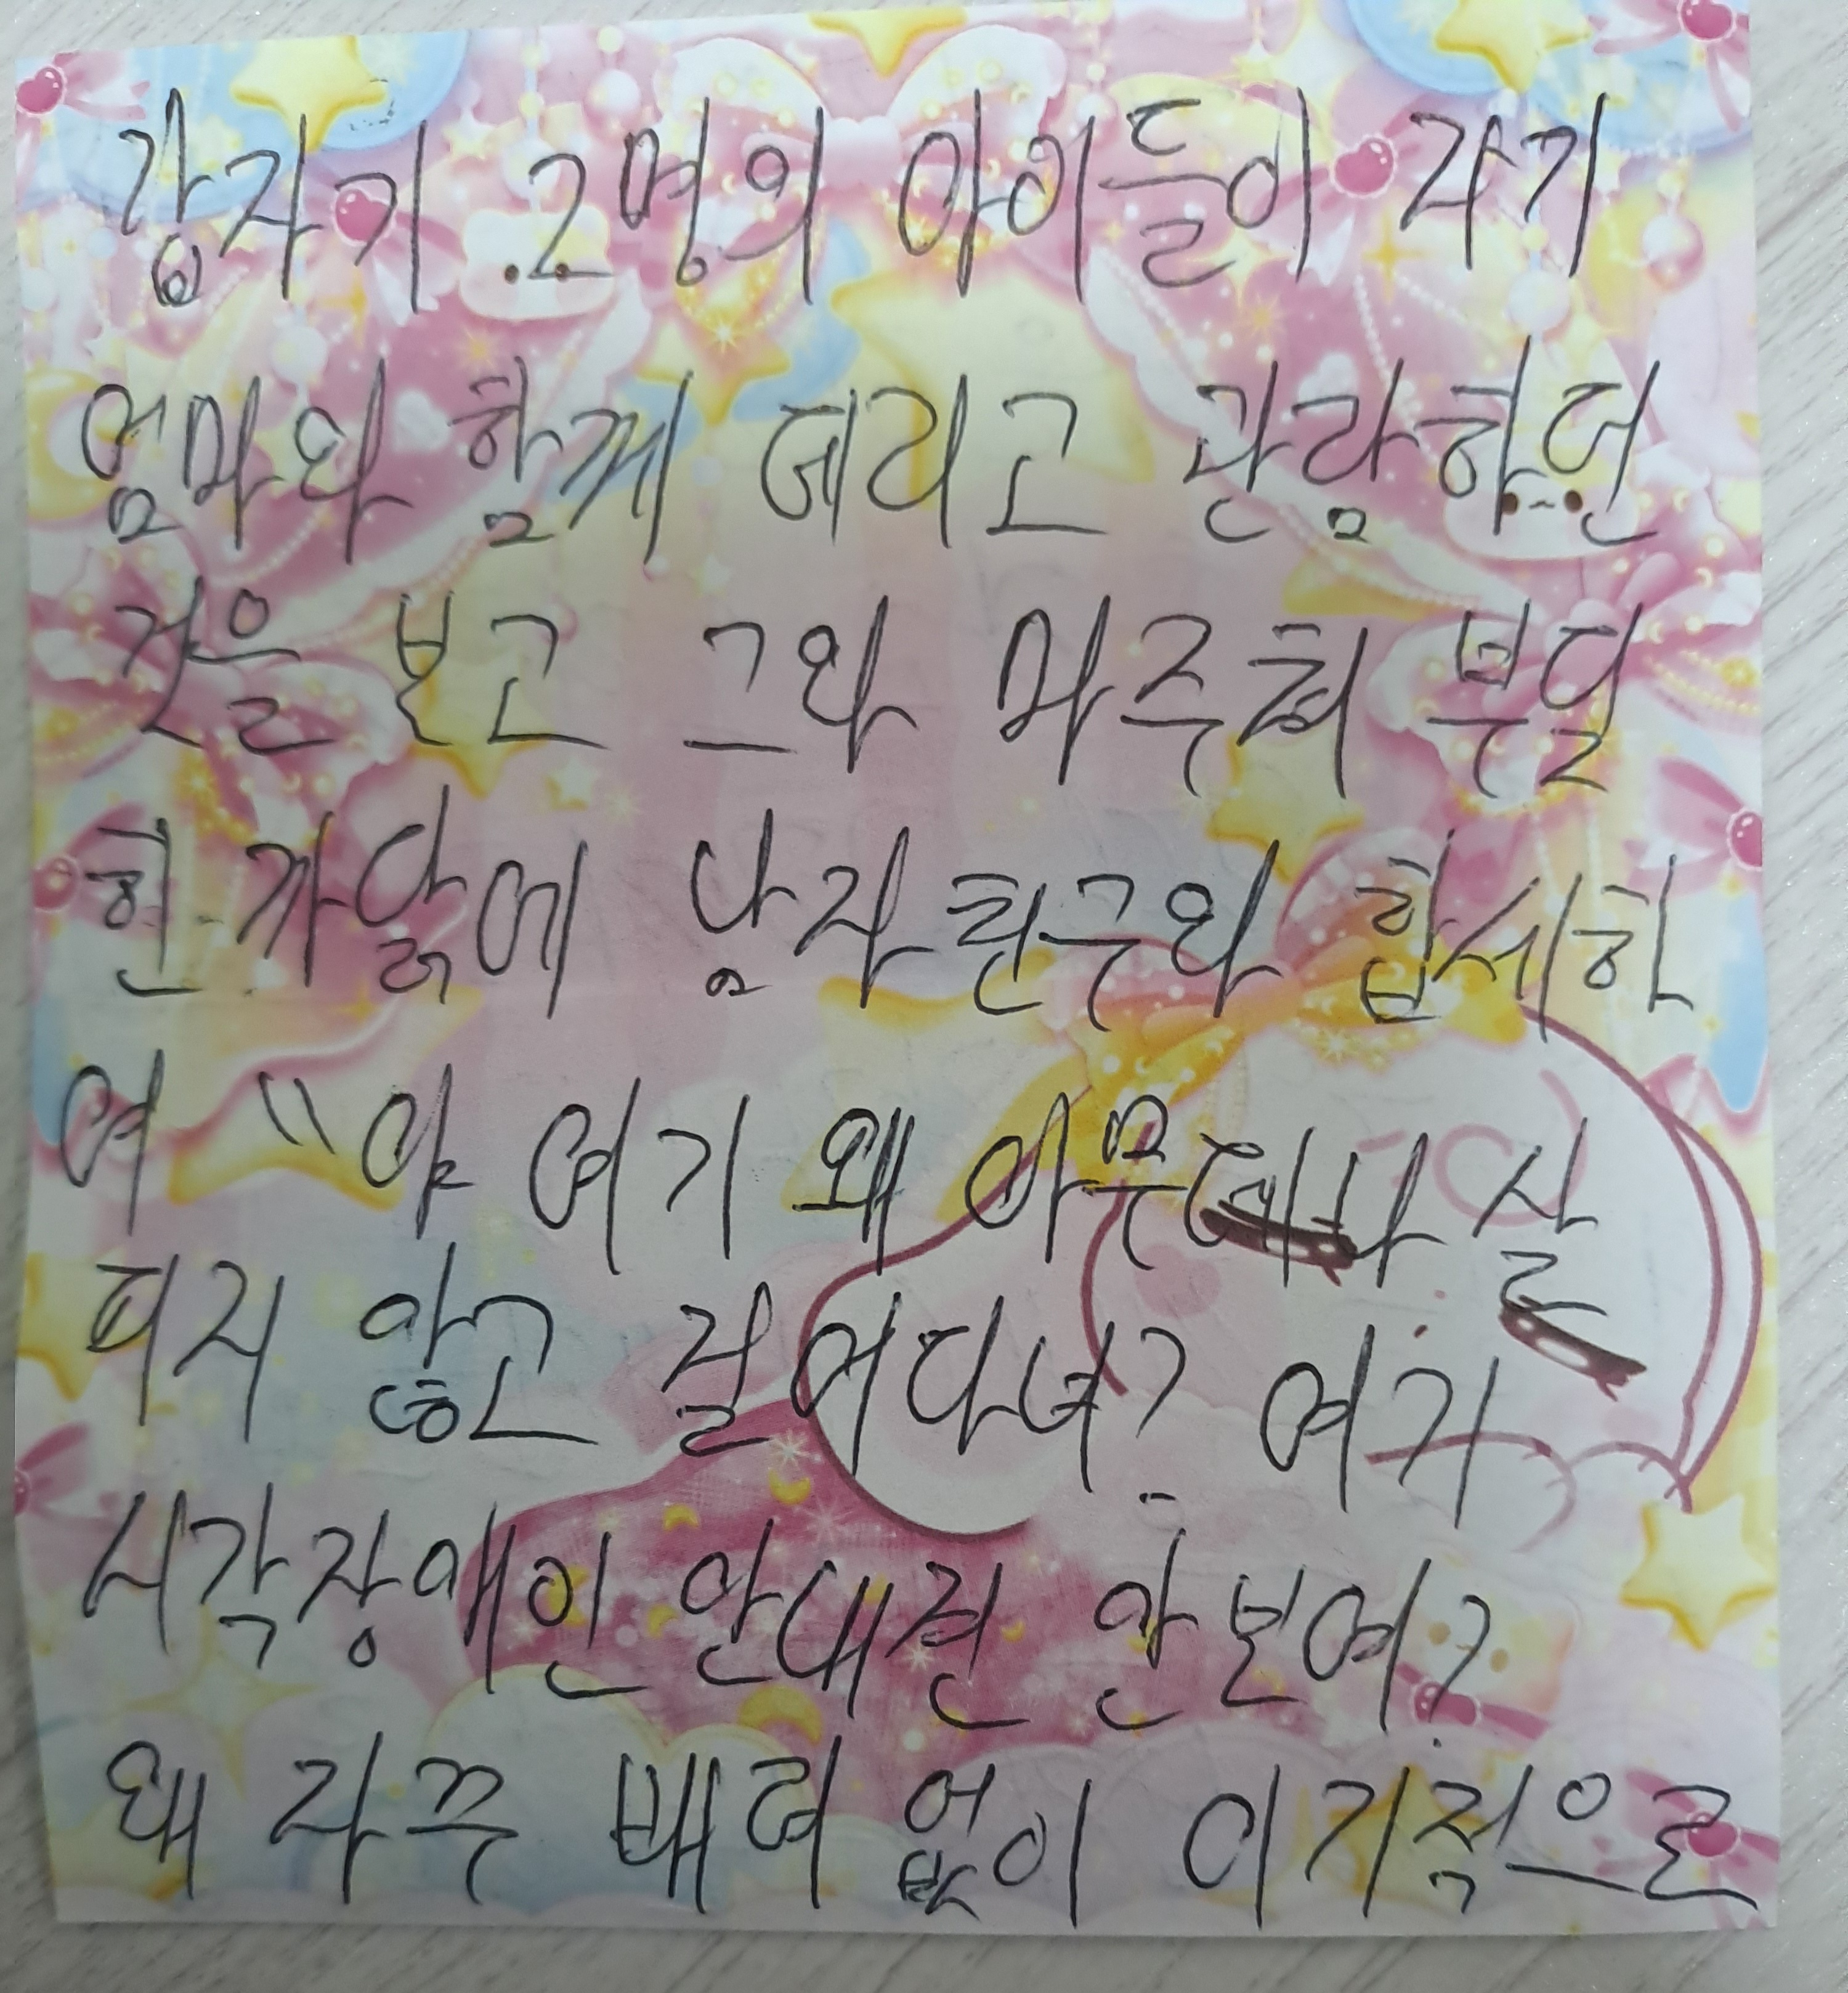 갑자기 2명의 아이들이 자기
엄마와 함께 데리고 관람하던
것을 보고 그와 마주쳐 부딪
힌 까닭에 남자친구와 합세하
여 "야 여기 왜 아무데나 살
피지 않고 걸어다녀? 여기
시각장애인 안내견 안보여?
왜 자꾸 배려 없이 이기적으로